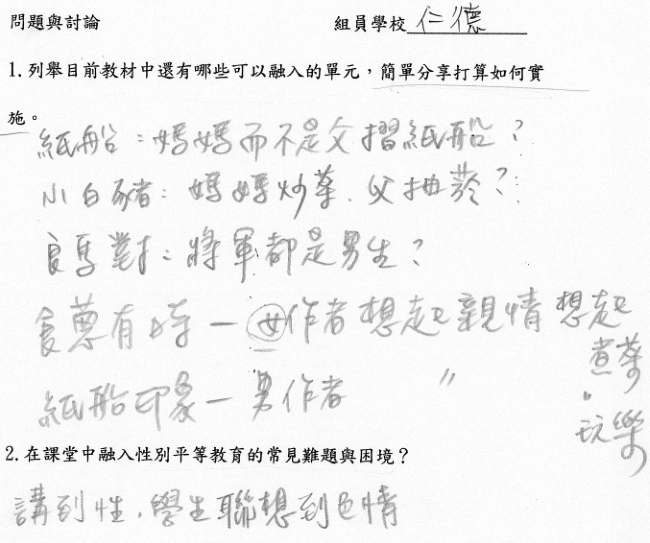 問題與討論 組員學校 仁德
1. 列舉目前教材中還有哪些可以融入的單元，簡單分享打算如何實
施。
紙船：媽媽而不是父摺紙船？
小白豬：媽媽炒菜、父抽菸？
良馬對：將軍都是男生？
食蔥有時－女作者想起親情想起
煮菜
紙船印象－男作者 〃 〃
玩樂
2. 在課堂中融入性別平等教育的常見難題與困境？
講到性，學生聯想到色情